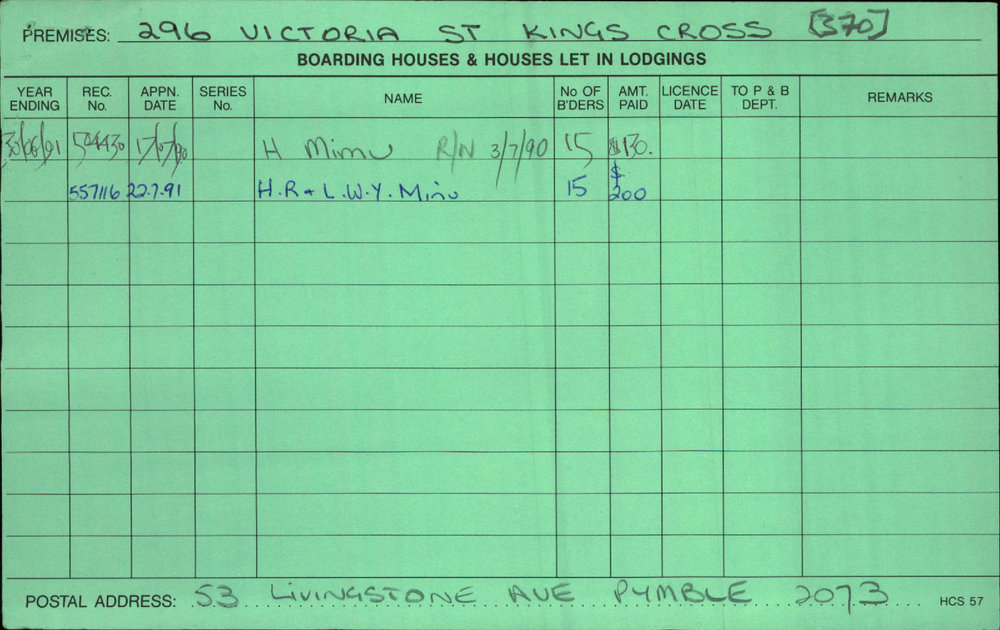 PREMISES: 296 VICTORIA ST KINGS CROSS [370]
BOARDING HOUSES & HOUSES LET IN LODGINGS
YEAR ENDING REC. No. APPN. DATE SERIES No. NAME No OF B'DERS AMT. PAID LICENCE DATE TO P & B DEPT. REMARKS
30/06/91 504430 17/07/90 H Mimu R/N 3/7/90 15 $130.
557116 22.7.91 H.R & L.W.Y. Minu 15 $200
POSTAL ADDRESS: 53 LIVINGSTONE AVE PYMBLE 2073 HCS 57